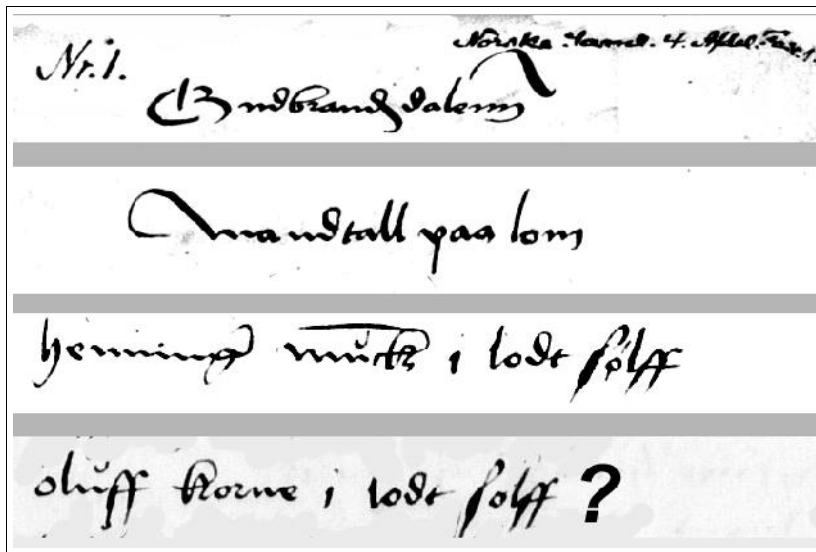 Norske Saml. 4. Afdel.
Nr. 1.
Gudbrandzdalenn
Mandtall paa lom
henning munck i lodt sølff
oluff korne i lodt sølff ?